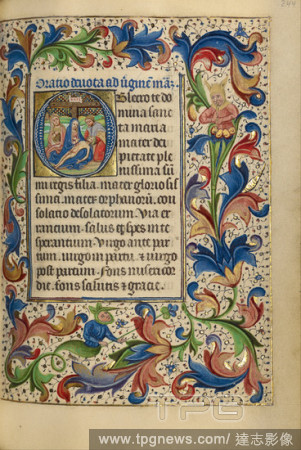 Oratio deuota ad uirginē mar̄
Obsecro te do
mina sanc
ta maria
mater dei
pietate ple
nissima sū
mi regis filia. mater glorio sis
sima. mater orphanorū. con
solatio desolatorum. Via er
rancium. salus et spes in te
sperantium. virgo ante par
tum. uirgo in partu. et uirgo
post partum. Fons misericor
die. fons salutis et gracie.
TPG
www.tpgnews.com/達志影像